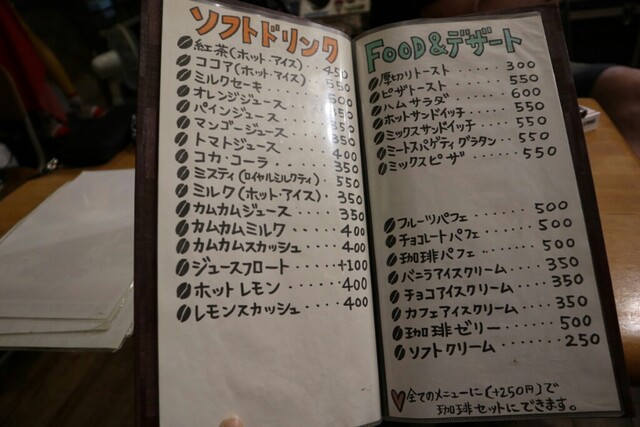 ソフトドリンク
紅茶(ホット・アイス) 450
ココア(ホット・アイス) 550
ミルクセーキ
オレンジジュース
パインジュース
マンゴージュース 350
トマトジュース 350
コカ・コーラ 400
ミスティ(ロイヤルミルクティ) 350
ミルク(ホット・アイス) 550
カムカムジュース 350
カムカムミルク 350
カムカムスカッシュ 400
ジュースフロート 400
ホットレモン +100
レモンスカッシュ 400
400
FOOD&デザート
厚切りトースト 300
ピザトースト 550
ハムサラダ 600
ホットサンドイッチ 550
ミックスサンドイッチ 550
ミートスパゲティグラタン 550
ミックスピザ 550
フルーツパフェ 500
チョコレートパフェ 500
珈琲パフェ 500
バニラアイスクリーム 350
チョコアイスクリーム 350
カフェアイスクリーム 350
珈琲ゼリー 500
ソフトクリーム 250
全てのメニューに(+250円)で
珈琲セットにできます。